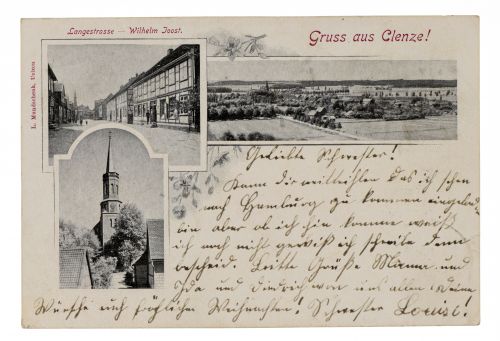 Langestrosse — Wilhelm Joost.
Gruss aus Clenze!
L. Mundschenk, Uelzen
Geliebte Schwester!
Kann dir mitteihlen das ich schon
nach Hamburg zu kommen eingelad
bin aber ob ich hin komme weiß
ich noch nicht gewiß ich schreibe dann
bescheid. Bitte Grüße Mama und
Ida und von uns allen
Wünsche euch fröhlichen Weihnachten! Schwester Louise!